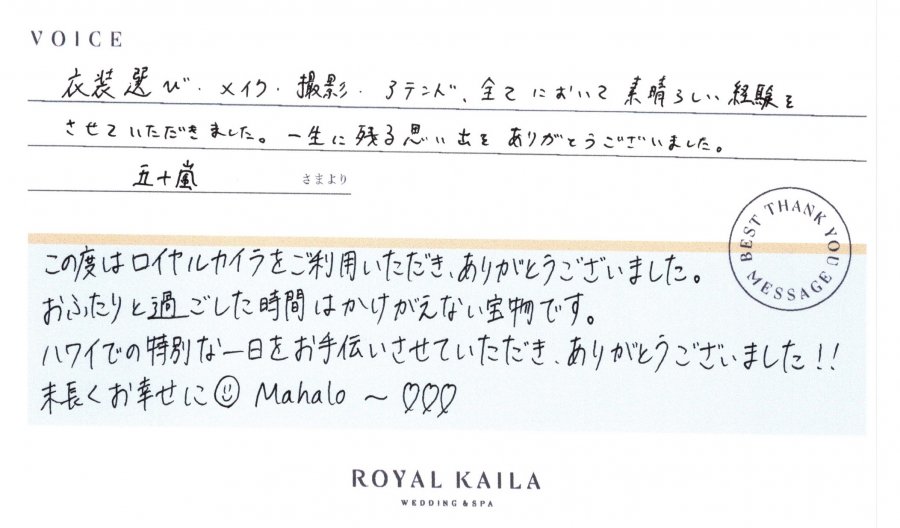 VOICE
衣装選び・メイク・撮影・アテンド、全てにおいて素晴らしい経験を
させていただきました。一生に残る思い出をありがとうございました。
五十嵐 さまより
BEST THANK YOU MESSAGE
この度はロイヤルカイラをご利用いただき、ありがとうございました。
おふたりと過ごした時間はかけがえない宝物です。
ハワイでの特別な一日をお手伝いさせていただき、ありがとうございました!!
末長くお幸せに☺ Mahalo ~ ♡♡♡
ROYAL KAILA
WEDDING & SPA